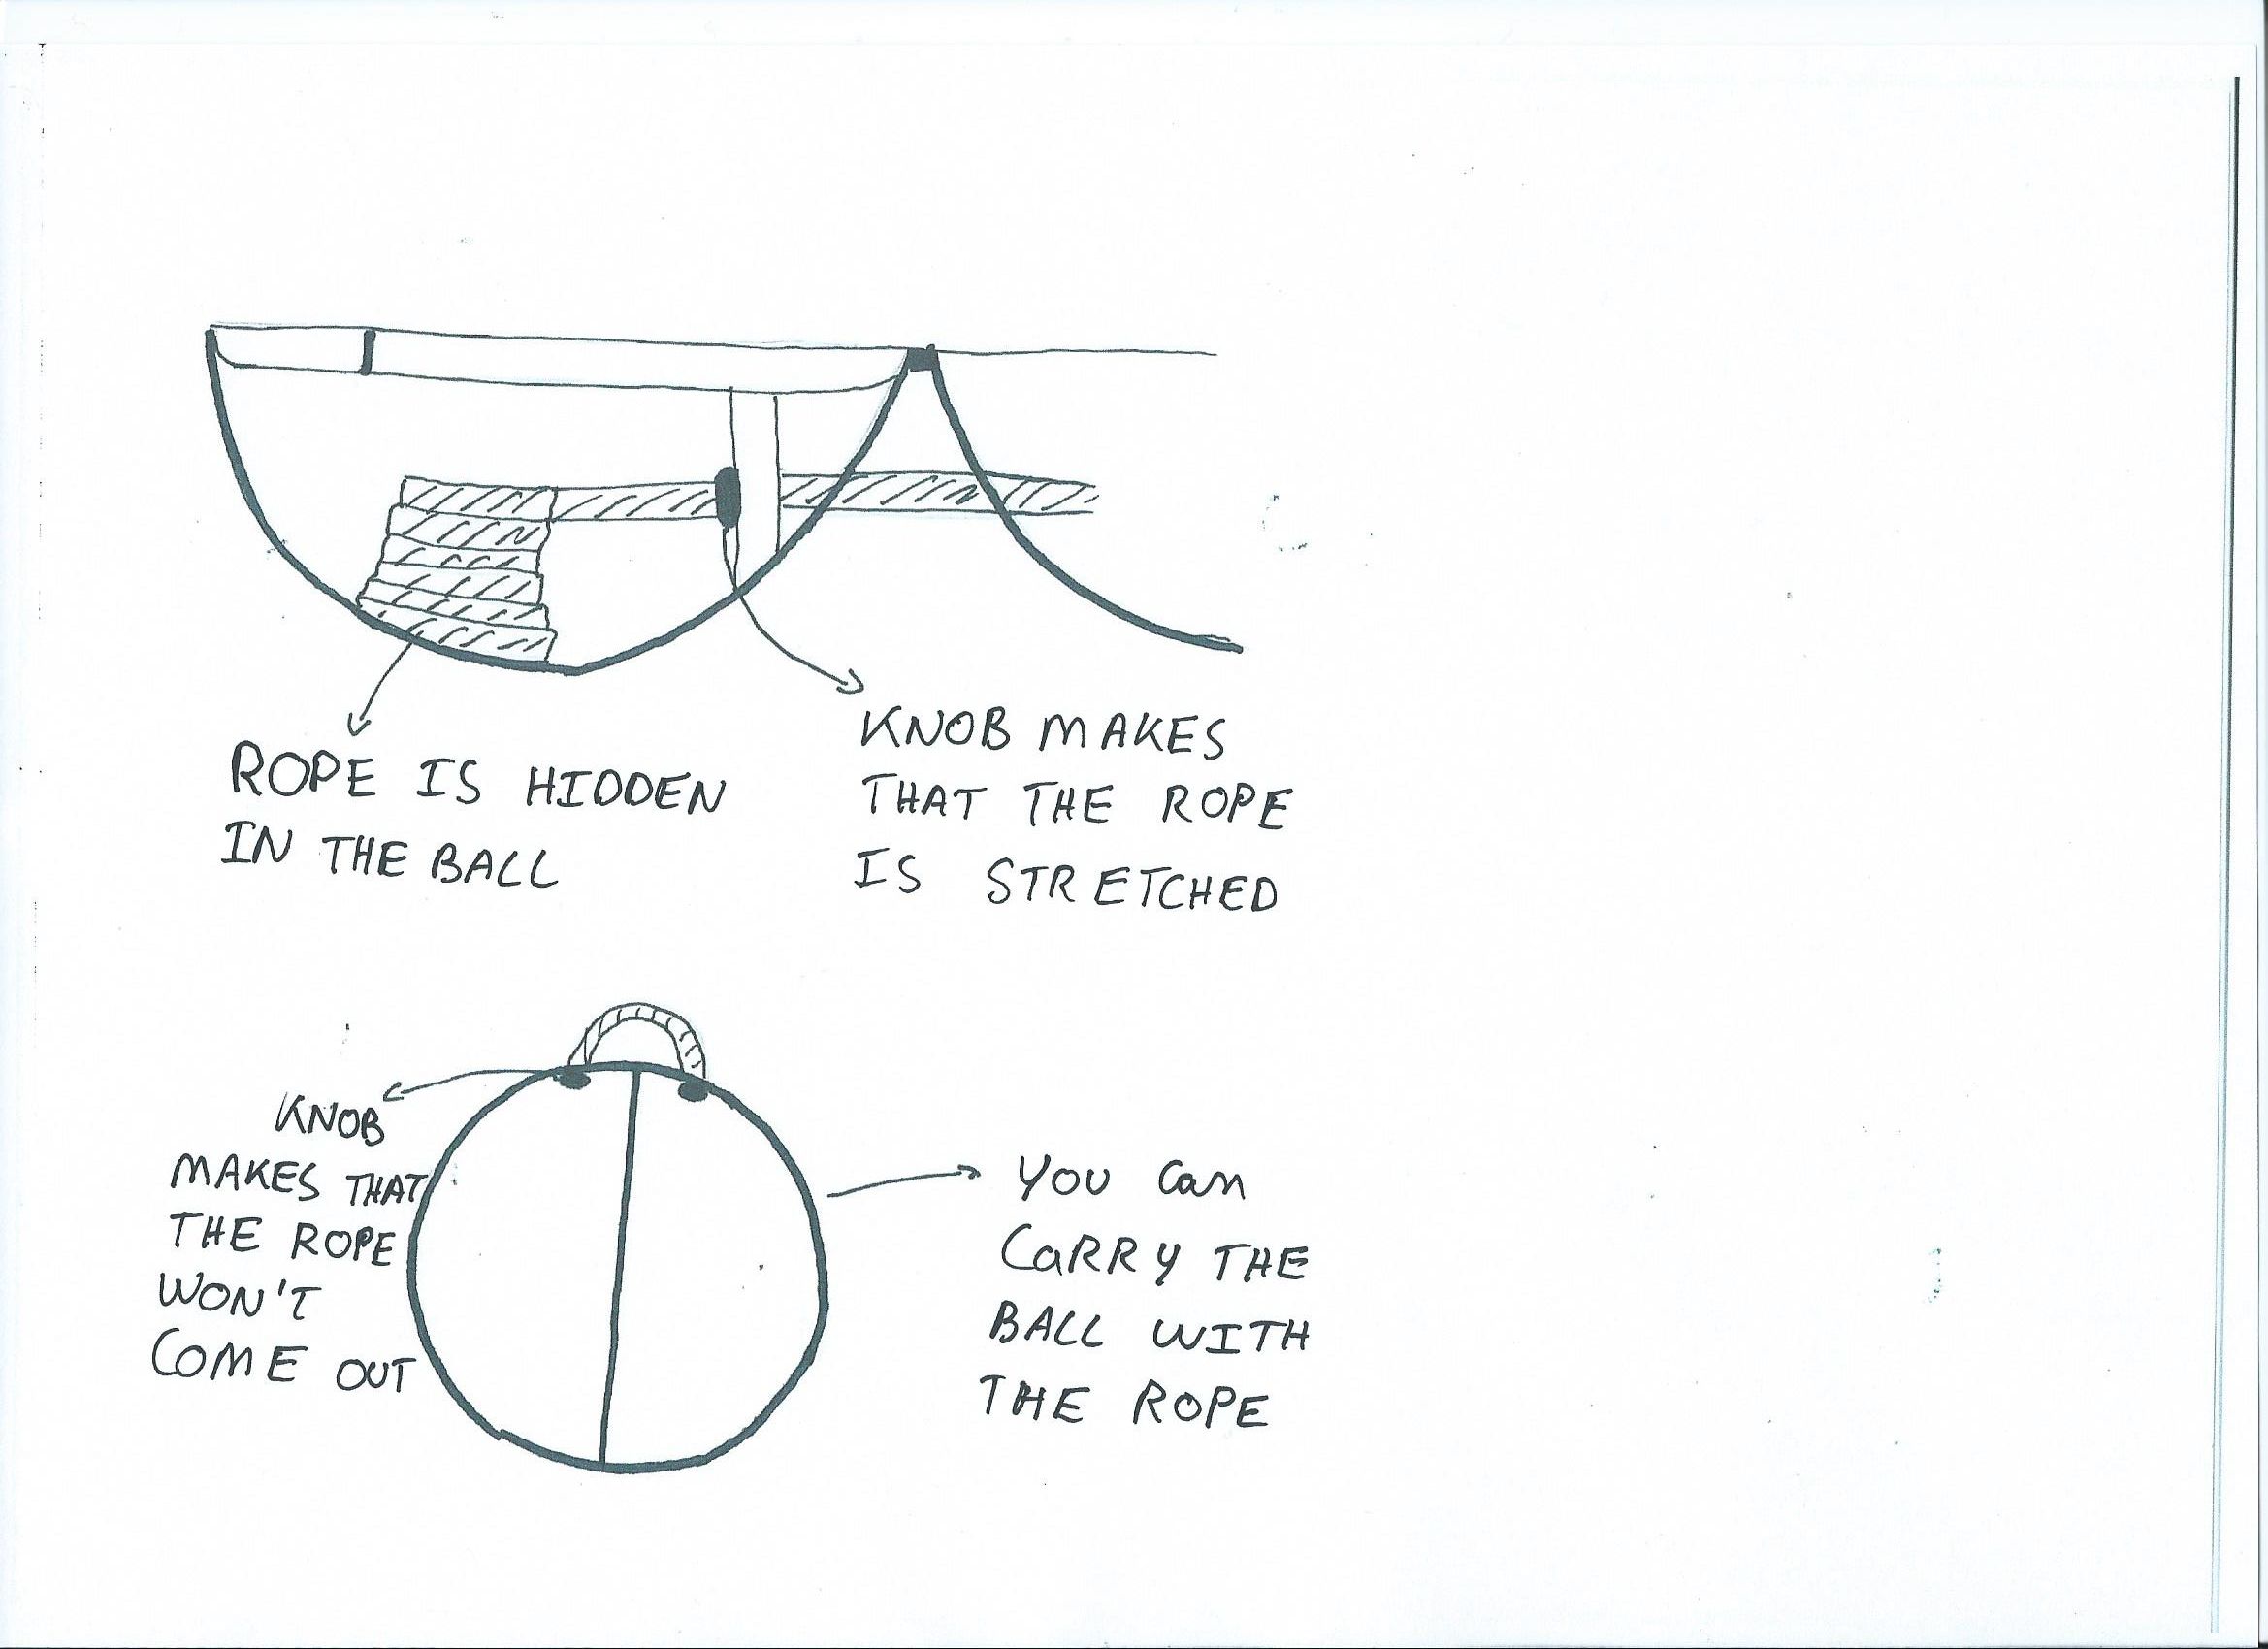 ROPE IS HIDDEN
IN THE BALL
KNOB MAKES
THAT THE ROPE
IS STRETCHED
KNOB
MAKES THAT
THE ROPE
WON'T
COME OUT
YOU can
CaRRY THE
BALL WITH
THE ROPE